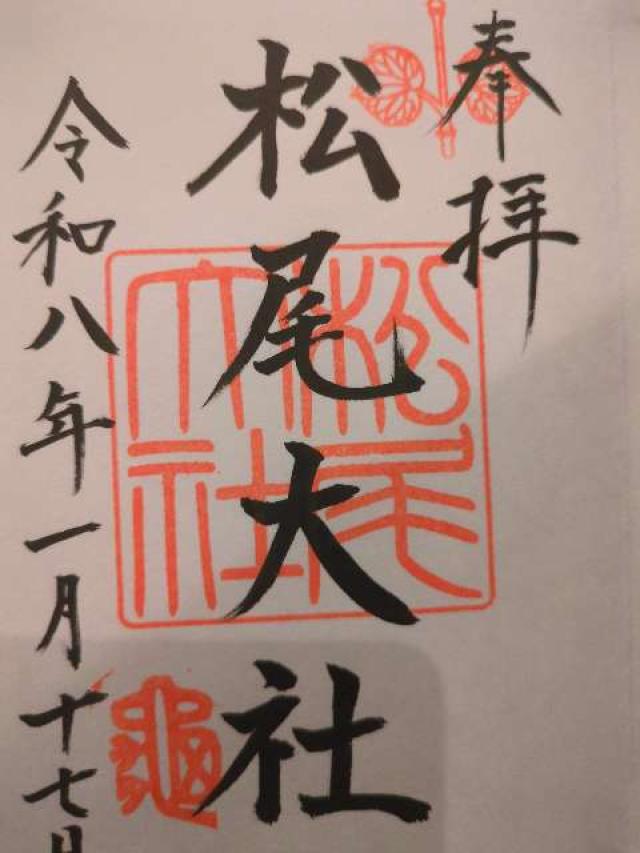 奉拝
松尾大社
令和八年一月十七日
松尾大社
龜